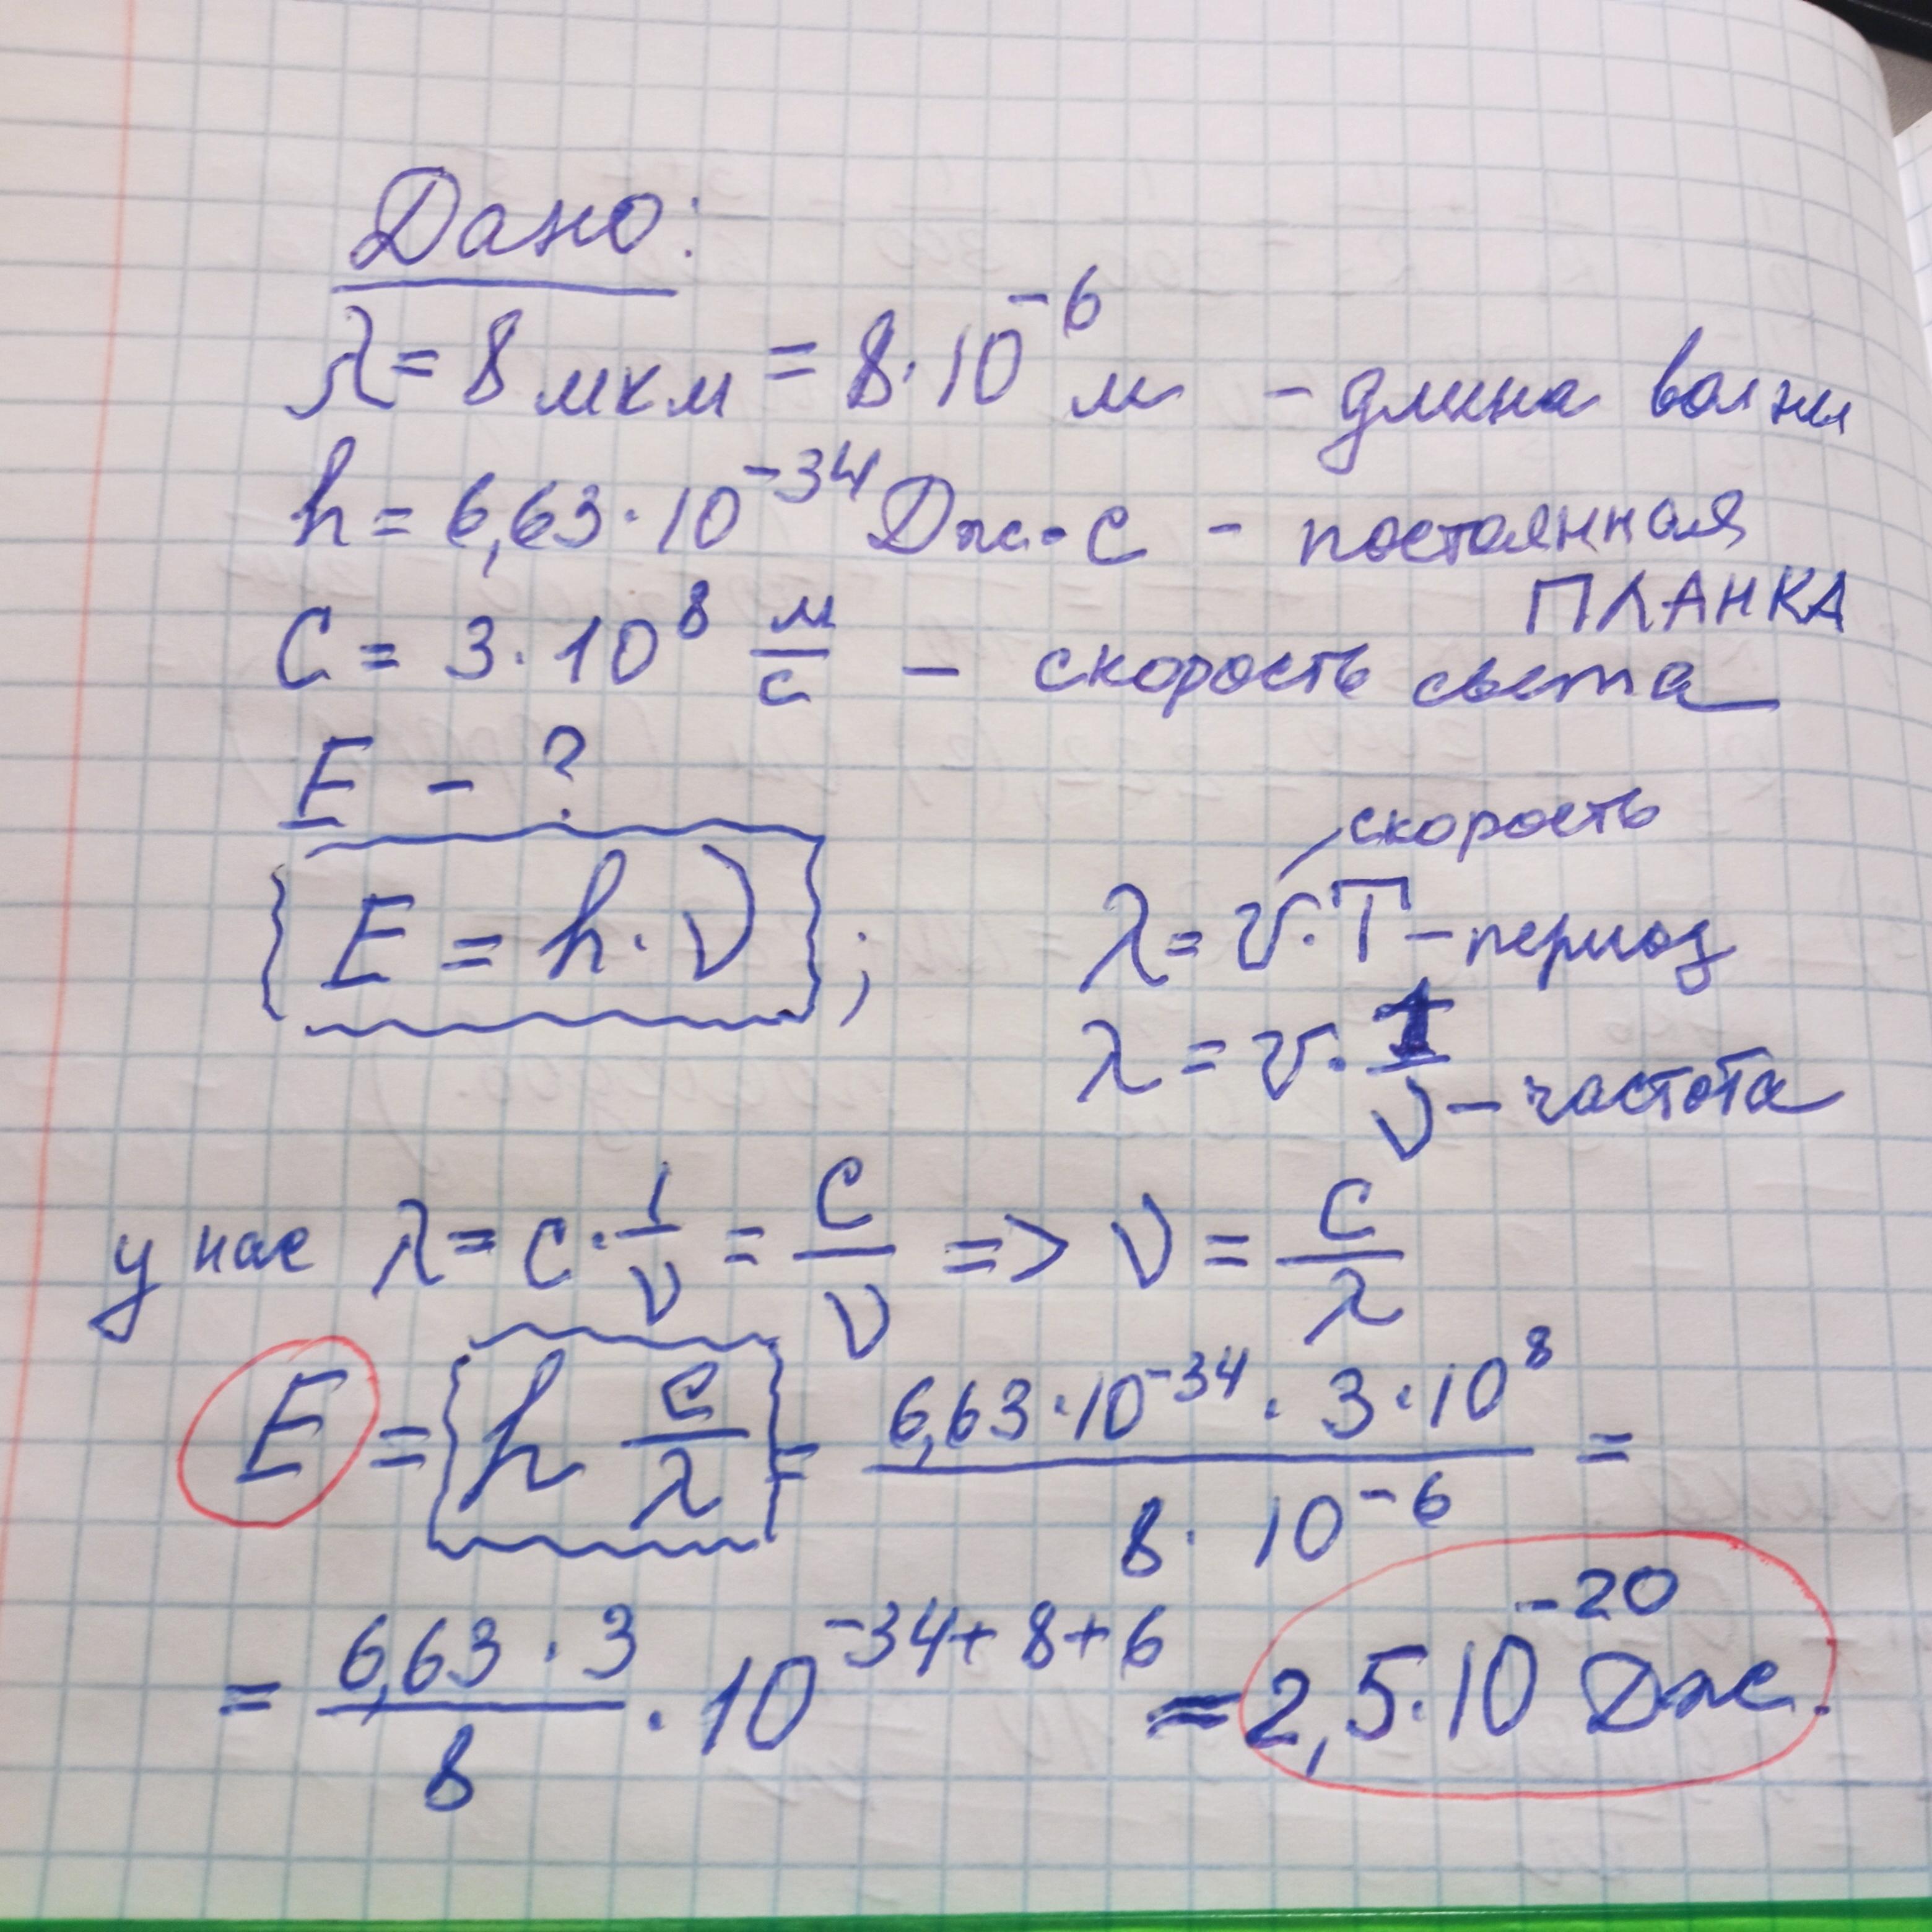 Дано:
λ = 8 мкм = 8·10⁻⁶ м - длина волны
h = 6,63·10⁻³⁴ Дж·с - постоянная
ПЛАНКА
C = 3·10⁸ м/с - скорость света
E - ?
скорость
E = h·ν ; λ = v·T - период
λ = v·1/ν - частота
у нас λ = c·1/ν = c/ν => ν = c/λ
E = h c/λ = 6,63·10⁻³⁴·3·10⁸ / 8·10⁻⁶ =
= 6,63·3/8 · 10⁻³⁴⁺⁸⁺⁶ = 2,5·10⁻²⁰ Дж.